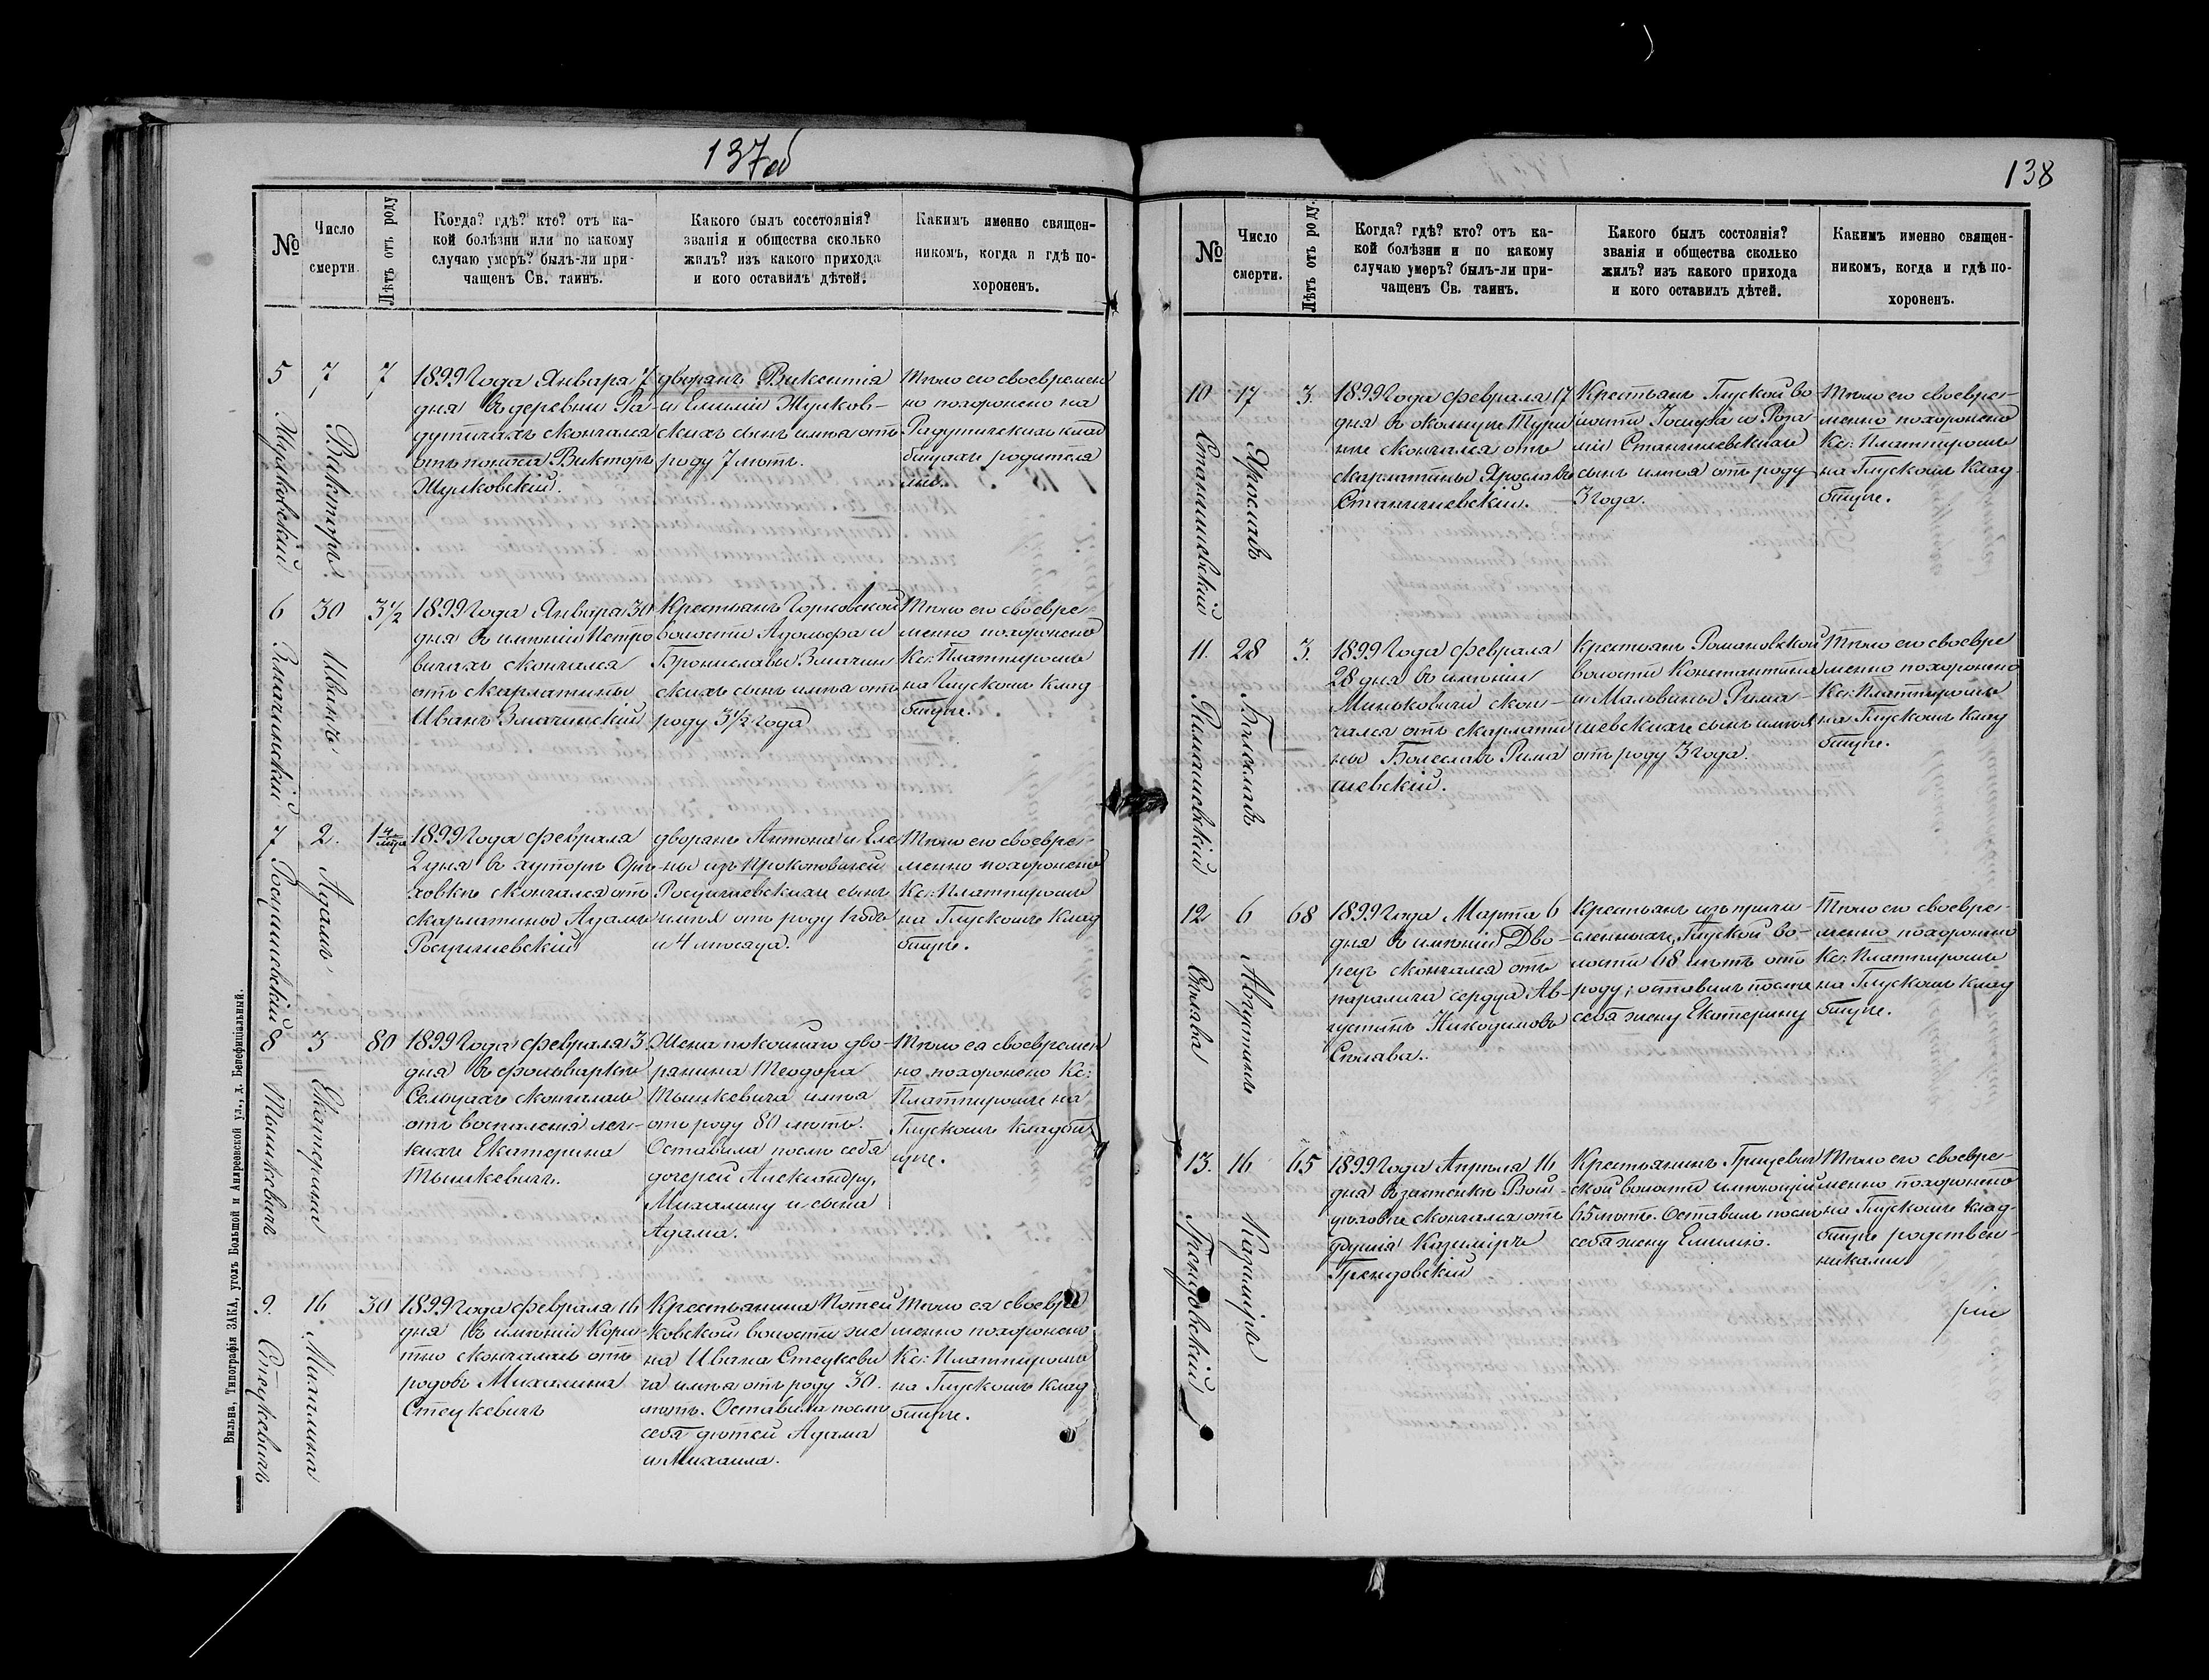 137об
№
Число
смерти.
Лѣтъ отъ роду
Когда? гдѣ? кто? отъ ка-
кой болѣзни или по какому
случаю умеръ? былъ-ли при-
чащенъ Св. таинъ.
Какого былъ сосстоянія?
званія и общества сколько
жилъ? изъ какого прихода
и кого оставилъ дѣтей.
Какимъ именно священ-
никомъ, когда и гдѣ по-
хороненъ.
5
Жулковскій
7
Викторъ
7
1899 года Января 7
дня въ деревни Ра-
дутичахъ скончался
отъ поноса Викторъ
Жулковскій.
дворянъ Викентія
и Емиліи Жулков-
скихъ сынъ имѣя отъ
роду 7 лѣтъ.
Тѣло его своевремен
но похоронено на
Радутическихъ клад
бищахъ родителя
ми.
6
Змачинскій
30
Иванъ
3½
1899 года Января 30
дня въ имѣніи Петро
вичахъ скончался
отъ скарлатины
Иванъ Змачинскій
Крестьянъ Горковской
волости Адольфа и
Брониславы Змачин
скихъ сынъ имѣя отъ
роду 3½ года
Тѣло его своевре
менно похоронено
Кс: Платпиромъ
на Глускомъ клад
бищѣ.
7
Росцишевскій
2.
Адамъ
1 4/мѣсяца
1899 года февраля
2 дня въ хуторѣ Орѣ-
ховкѣ скончался отъ
скарлатины Адамъ
Росцишевскій
дворянъ Антона и Еле
ны изъ Прокоповичей
Росцишевскихъ сынъ
имѣя отъ роду 1 годъ
и 4 мѣсяца.
Тѣло его своевре-
менно похоронено
Кс: Платпиромъ
на Глускомъ клад
бищѣ.
8
Тышкевичъ
3
Екатерина
80
1899 года февраля 3
дня въ фольваркѣ
Сельцахъ скончалась
отъ воспаленія лег-
кихъ Екатерина
Тышкевичъ.
Жена покойнаго дво-
рянина Теодора
Тышкевича имѣя
отъ роду 80 лѣтъ.
Оставила послѣ себя
дочерей Александру,
Михалину и сына
Адама.
Тѣло ея своевремен
но похоронено Кс:
Платпиромъ на
Глускомъ кладби
щѣ.
9.
Стецкевичъ
16
Михалина
30
1899 года февраля 16
дня въ имѣніи Кори-
тно скончалась отъ
родовъ Михалина
Стецкевичъ
Крестьянина Потей
ковской волости же
на Ивана Стецкеви
ча имѣя отъ роду 30.
лѣтъ. Оставила послѣ
себя дѣтей Адама
и Михаила.
Тѣло ея своевре
менно похоронено
Кс: Платпиромъ
на Глускомъ клад
бищѣ.
Вильна, Типографія ЗАКА, уголъ Большой и Андреевской ул., д. Бенефиціальный.
138
№
Число
смерти.
Лѣтъ отъ роду.
Когда? гдѣ? кто? отъ ка-
кой болѣзни и по какому
случаю умеръ? былъ-ли при-
чащенъ Св. таинъ.
Какого былъ состоянія?
званія и общества сколько
жилъ? изъ какого прихода
и кого оставилъ дѣтей.
Какимъ именно священ-
никомъ, когда и гдѣ по-
хороненъ.
10
Станишевскій
17
Ярославъ
3.
1899 года февраля 17
дня въ околицѣ Тури
нѣ скончался отъ
скарлатины Ярославъ
Станишевскій.
Крестьянъ Глуской во
лости Іосифа и Роза
ліи Станишевскихъ
сынъ имѣя отъ роду
3 года.
Тѣло его своевре-
менно похоронено
Кс: Платпиромъ
на Глускомъ клад-
бищѣ.
11.
Римашевскій
28
Болеславъ
3.
1899 года февраля
28 дня въ имѣніи
Миньковичи скон-
чался отъ скарлати
ны Болеславъ Рима
шевскій.
Крестьянъ Романовской
волости Константина
и Мальвины Рима-
шевскихъ сынъ имѣя
отъ роду 3 года.
Тѣло его своевре
менно похоронено
Кс: Платпиромъ
на Глускомъ клад
бищѣ.
12
Сплава
6
Августинъ
68
1899 года Марта 6
дня въ имѣніи Дво-
рецъ скончался отъ
паралича сердца Ав-
густинъ Никодимовъ
Сплава.
Крестьянъ изъ причи-
сленныхъ, Глуской во-
лости 68 лѣтъ отъ
роду; оставилъ послѣ
себя жену Екатерину
Тѣло его своевре-
менно похоронено
Кс: Платпиромъ
на Глускомъ клад
бищѣ.
13.
Грендовскій
16
Казиміръ
65
1899 года Апрѣля 16
дня въ застенкѣ Вой-
скончался отъ
Казиміръ
Грендовскій
Крестьянинъ Грицевич
ской волости имѣющій
65 лѣтъ. Оставилъ послѣ
себя жену Емилію.
Тѣло его своевре-
менно похоронено
на Глускомъ клад-
бищѣ родствен-
никами